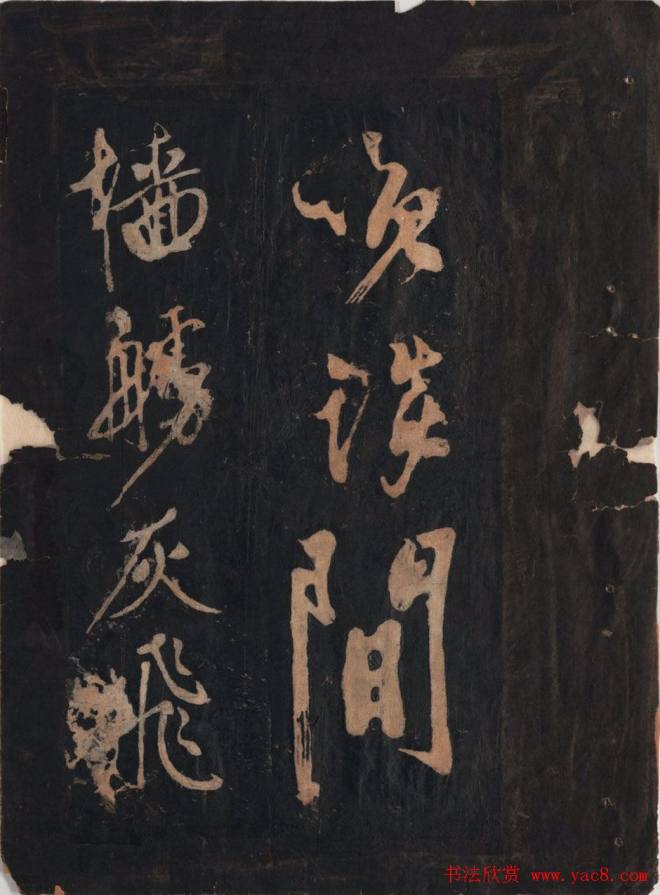 咲談間
檣艣灰飛
书法欣赏 www.yac8.com